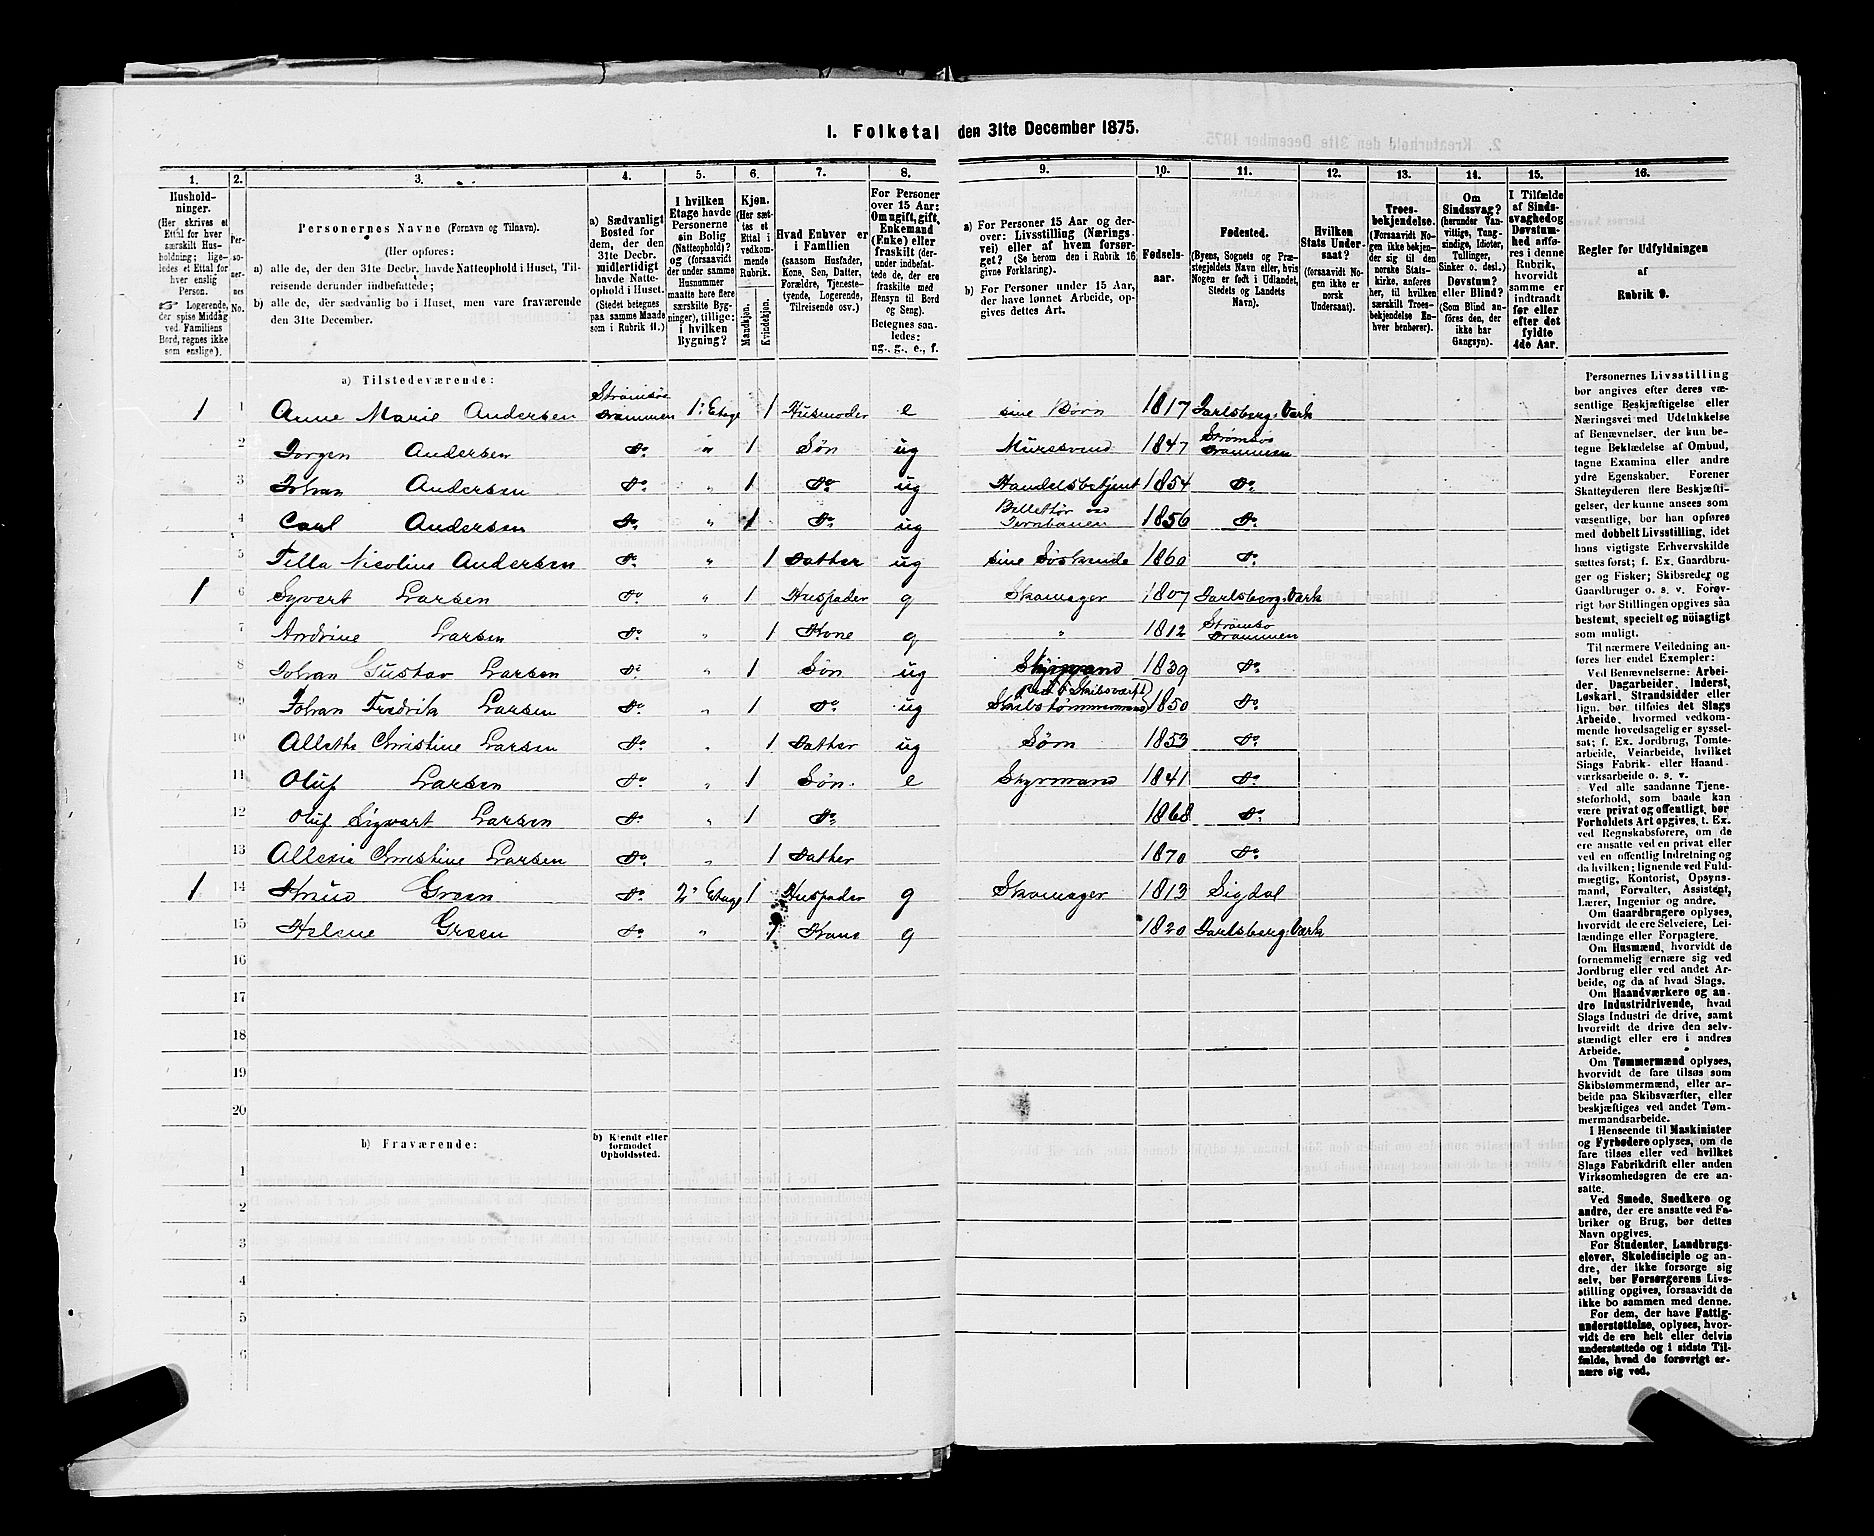 1. Folketal den 31te December 1875.
1. 2. 3. 4. 5. 6. 7. 8. 9. 10. 11. 12. 13. 14. 15. 16.
Husholdninger.
(Her skrives et
Ettal for hver
særskilt Husholdning;
ligeledes et Ettal for
hver enslig
Person.
Logerende,
der spise Middag
ved Familiens
Bord, regnes ikke
som enslige).
Personernes No.
Personernes Navne (Fornavn og Tilnavn).
(Her opføres:
a) alle de, der den 31te Decbr. havde Natteophold i Huset, Tilreisende derunder indbefattede;
b) alle de, der sædvanlig bo i Huset, men vare fraværende
den 31te December.
a) Sædvanligt
Bosted for
dem, der den
31te Decbr.
midlertidigt
havde Natteophold i Huset.
(Stedet betegnes
paa samme Maade
som i Rubrik 11.)
I hvilken
Etage havde
Personerne
sin Bolig
(Natteophold)?
og (forsaavidt
der under samme
Husnummer
maatte høre flere
særskilte Bygninger), tillige:
i hvilken
Bygning?
Kjøn.
(Her sættes et
Ettal i
vedkommende
Rubrik.
Mandkjøn.
Kvindekjøn.
Hvad Enhver er
i Familien
(saasom Husfader,
Kone, Søn, Datter,
Forældre, Tjenestetyende, Logerende,
Tilreisende osv.)
For Personer
over 15 Aar:
Om ugift, gift,
Enkemand
(Enke) eller
fraskilt (derunder indbefattede de, der ere
fraskilte med
Hensyn til Bord
og Seng).
Betegnes saaledes:
ug., g., e., f.
a) For Personer 15 Aar og derover: Livsstilling (Næringsvei) eller af hvem forsørget? (Se herom den i Rubrik 16
givne Forklaring).
b) For Personer under 15 Aar,
der have lønnet Arbeide, opgives dettes Art.
Fødselsaar.
Fødested.
(Byens, Sognets og Præstegjeldets Navn eller, hvis
Nogen er født i Udlandet,
Stedets og Landets
Navn).
Hvilken
Stats Undersaat?
(forsaavidt Nogen ikke er
norsk
Undersaat).
Troesbekjendelse.
(Forsaavidt Nogen ikke bekjender sig til den
norske Statskirke, anføres
her, til hvilken
særskilt Troesbekjendelse Enhver henhører).
Om
Sindssvag?
(herunder Vanvittige, Tungsindige, Idioter,
Tullinger,
Sinker o. desl.)
Døvstum?
eller Blind?
(Som Blind anføres den, der
ikke har
Gangsyn).
I Tilfælde
af Sindssvaghed og
Døvstumhed anføres i denne
Rubrik,
hvorvidt
samme er
indtraadt
før eller
efter det
fyldte
4de Aar.
Regler for Udfyldningen
af
Rubrik 9.
a) Tilstedeværende:
1 1 Anne Marie Andersen Strømsøe Drammen 1ª Etage 1 Husmoder e sine Børn 1817 Jarlsberg. Værk
2 Jørgen Andersen do. " 1 Søn ug Muresvend 1847 Strømsø Drammen
3 Johan Andersen do. " 1 do. ug Handelsbetjent 1854 do.
4 Carl Andersen do. " 1 do. ug Billettør ved Jernbanen 1856 do.
5 Tilla Nicoline Andersen do. " 1 Datter ug sine Søskende 1860 do.
1 6 Syvert Larsen do. " 1 Husfader g Skomager 1807 Jarlsberg. Værk
7 Andrine Larsen do. " 1 Kone g " 1812 Strømsø Drammen
8 Johan Gustav Larsen do. " 1 Søn ug Styrmand 1839 do.
9 Johan Fredrik Larsen do. " 1 do. ug Skibstømmermand 1850 do.
10 Allethe Christine Larsen do. " 1 Datter ug Søm 1853 do.
11 Oluf Larsen do. " 1 Søn e Styrmand 1841 do.
12 Oluf Sigvart Larsen do. " 1 do. 1868 do.
13 Christine Larsen do. " 1 Datter 1870 do.
1 14 Knud Green do. 2ª Etage 1 Husfader g Skomager 1813 Sigdal
15 Helene Green do. " 1 Kone g 1820 Jarlsberg. Værk
16
17
18
19
20
b) Fraværende:
b) Kjendt eller
formodet
Opholdssted.
1
2
3
4
5
6
Personernes Livsstilling
bør angives efter deres væsentlige Beskjæftigelse eller
Næringsvei med Udelukkelse
af Benævnelser, der kun betegne Beklædelse af Ombud,
tagne Examina eller andre
ydre Egenskaber. Forener
Skatteyderen flere Beskjæftigelser, der kunne ansees som
væsentlige, bør han opføres
med dobbelt Livsstilling, idet
hans vigtigste Erhvervskilde
sættes først; f. Ex. Gaardbruger og Fisker; Skibsreder og
Gaardbruger o. s. v. Forøvrigt bør Stillingen opgives saa
bestemt, specielt og nøiagtigt
som muligt.
Til nærmere Veiledning anføres her endel Exempler:
Ved Benævnelserne: Arbeider, Dagarbeider, Inderst,
Løskarl, Strandsidder eller
lign. bør tilføies det Slags
Arbeide, hvormed vedkommende hovedsagelig er sysselsat; f. Ex. Jordbrug, Tomtearbeide, Veiarbeide, hvilket
Slags Fabrik- eller Haandværksarbeide o. s. v.
Ved alle saadanne Tjenesteforhold, som baade kan
være privat og offentligt, bør
Forholdets Art opgives, t. Ex.
ved Regnskabsførere, om de
ere ansatte ved en privat eller
ved en offentlig Indretning og
da hvilken; lignende ved Fuldmægtig, Kontorist, Opsynsmand, Forvalter, Assistent,
Lærer, Ingeniør og andre.
Om Gaardbrugere oplyses,
hvorvidt de ere Selveiere, Leilændinge eller Forpagtere.
Om Husmænd, hvorvidt de
fornemmelig ernære sig ved
Jordbrug eller ved andet Arbeide, og da af hvad Slags.
Om Haandværkere og andre Industridrivende, hvad
Slags Industri de drive, samt
hvorvidt de drive den selvstændigt eller ere i andres
Arbeide.
Om Tømmermænd oplyses,
hvorvidt de fare tilsøs som
Skibstømmermænd, eller arbeide paa Skibsværfter, eller
beskjæftiges ved andet Tømmermandsarbeide.
I Henseende til Maskinister
og Fyrbødere oplyses, om de
fare tilsøs eller ved hvilket
Slags Fabrikdrift eller anden
Virksomhedsgren de ere ansatte.
Ved Smede, Snedkere og
andre, der ere ansatte ved Fabriker og Brug, bør dettes
Navn opgives.
For Studenter, Landbrugselever, Skoledisciple og andre, der ikke forsørge sig
selv, bør Forsørgerens Livsstilling opgives, forsaavidt de
ikke bo sammen med denne.
For dem, der have Fattigunderstøttelse, oplyses, hvorvidt de ere helt eller delvis
understøttede og i sidste Tilfælde, hvad de forøvrigt ernære sig ved.